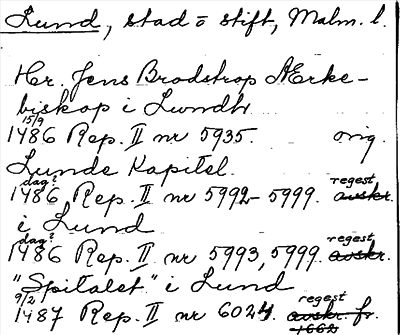 Lund, stad o stift, Malm. l.
Her. Jens Brodstrop Ærke-
biskop i Lundh
15/9
1486 Rep. II nr 5935. orig.
Lunde Kapitel.
dag? regest
1486 Rep. II nr 5992-5999. avskr.
i Lund
dag? regest
1486 Rep. II nr 5993, 5999. avskr.
"Spitalet" i Lund
9/2 regest
1487 Rep. II nr 6024. avskr. fr.
1662